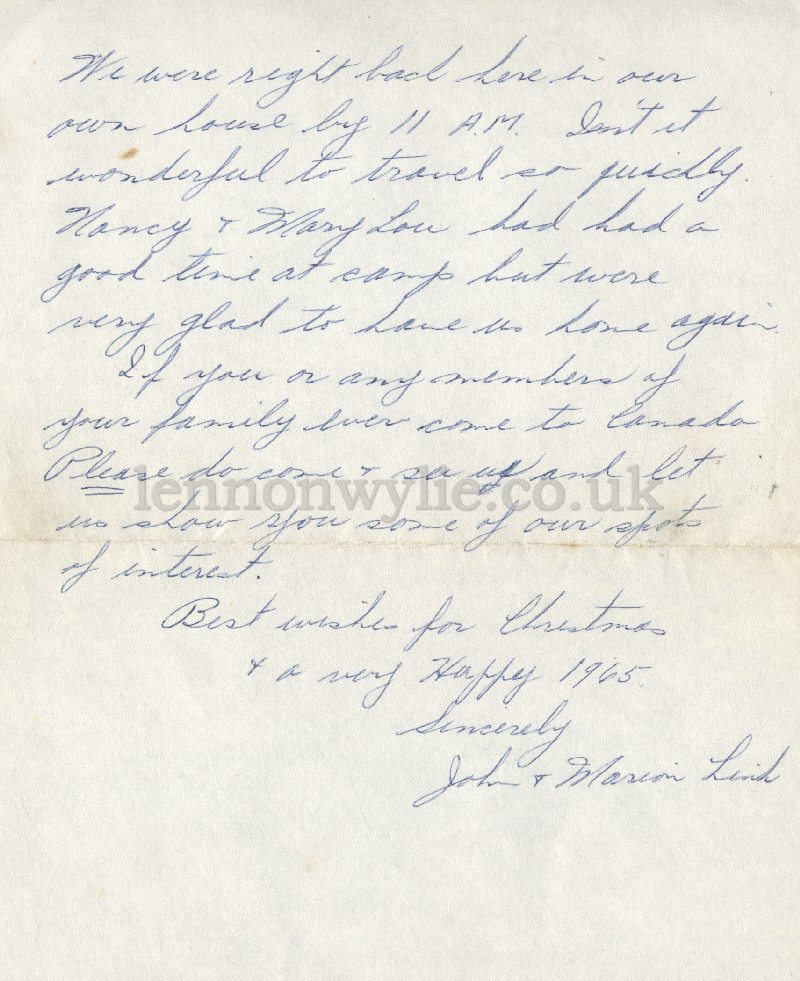 We were right back here in our
own house by 11 A.M. Isn't it
wonderful to travel so quickly.
Nancy & Mary Lou had had a
good time at camp but were
very glad to have us home again.
If you or any members of
your family ever come to Canada
Please do come & see us and let
us show you some of our spots
of interest.
Best wishes for Christmas
& a very Happy 1965.
Sincerely
John & Marion Link
lennonwylie.co.uk